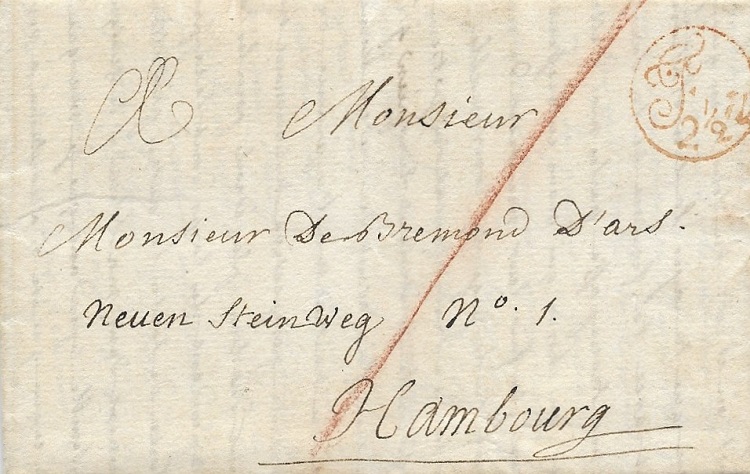 A Monsieur
Monsieur De Bremond D'ars.
Neuen Stein Weg No. 1.
Hambourg